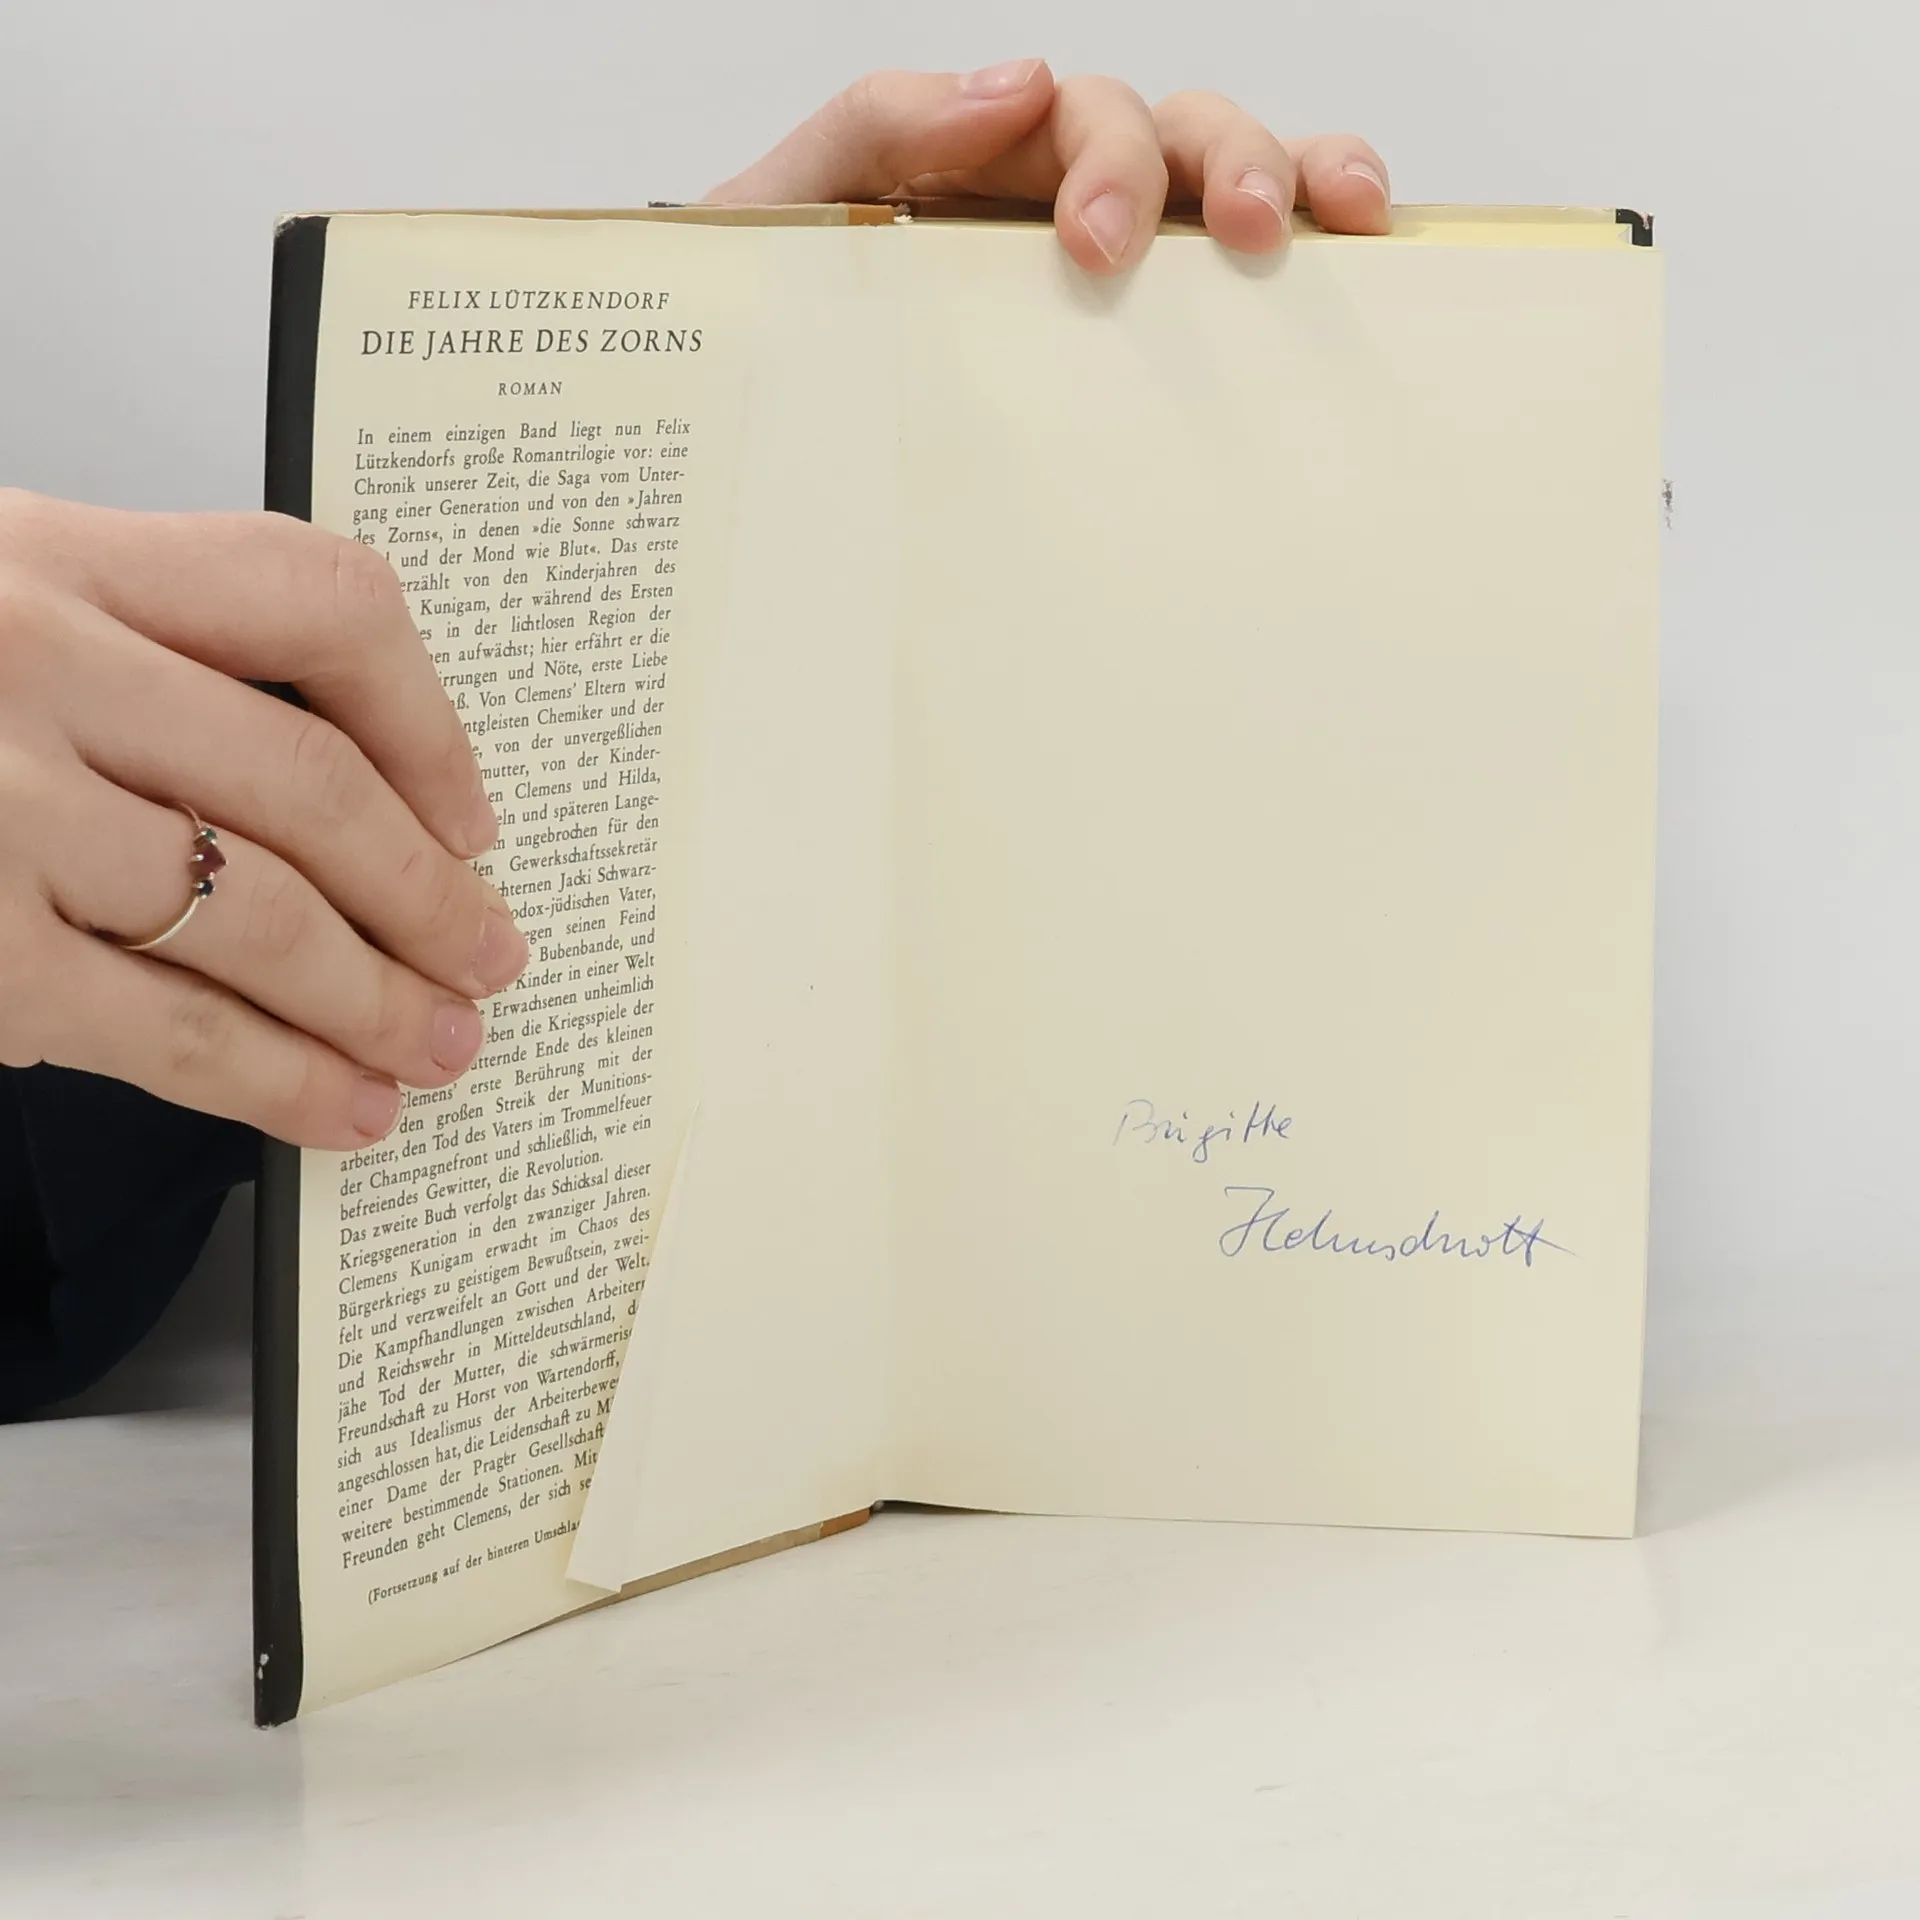 FELIX LÜTZKENDORF
DIE JAHRE DES ZORNS
ROMAN
In einem einzigen Band liegt nun Felix
Lützkendorfs große Romantrilogie vor: eine
Chronik unserer Zeit, die Saga vom Unter-
gang einer Generation und von den »Jahren
des Zorns«, in denen »die Sonne schwarz
und der Mond wie Blut«. Das erste
erzählt von den Kinderjahren des
Kunigam, der während des Ersten
in der lichtlosen Region der
aufwächst; hier erfährt er die
und Nöte, erste Liebe
Von Clemens' Eltern wird
Chemiker und der
von der unvergeßlichen
von der Kinder-
Clemens und Hilda,
und späteren Lange-
ungebrochen für den
Gewerkschaftssekretär
Jacki Schwarz-
jüdischen Vater,
seinen Feind
Bubenbande, und
Kinder in einer Welt
Erwachsenen unheimlich
die Kriegsspiele der
Ende des kleinen
Clemens' erste Berührung mit der
den großen Streik der Munitions-
arbeiter, den Tod des Vaters im Trommelfeuer
der Champagnefront und schließlich, wie ein
befreiendes Gewitter, die Revolution.
Das zweite Buch verfolgt das Schicksal dieser
Kriegsgeneration in den zwanziger Jahren.
Clemens Kunigam erwacht im Chaos des
Bürgerkriegs zu geistigem Bewußtsein, zwei-
felt und verzweifelt an Gott und der Welt.
Die Kampfhandlungen zwischen Arbeitern
und Reichswehr in Mitteldeutschland,
jähe Tod der Mutter, die
Freundschaft zu Horst von Wartendorff,
sich aus Idealismus der
angeschlossen hat, die Leidenschaft zu
einer Dame der Prager Gesellschaft
weitere bestimmende Stationen. Mit
Freunden geht Clemens, der sich
(Fortsetzung auf der hinteren
Brigitte